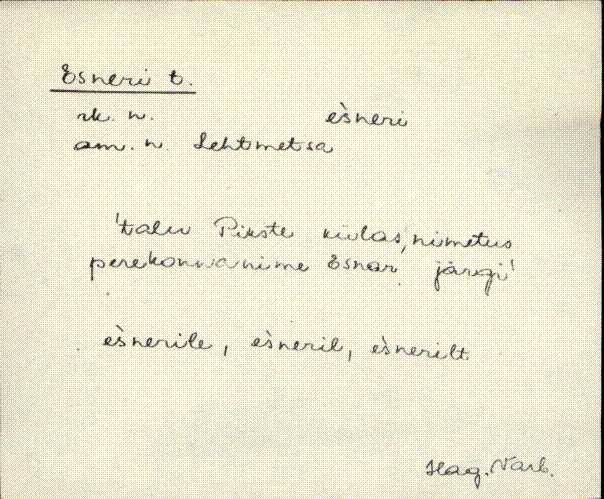 Esneri t.
rk. n. èsneri
am. n. Lehtmetsa
'talu Pikste külas, nimetus
perekonnanime Esnar järgi'
èsnerile, èsneril, èsnerilt
Hag. Varb.